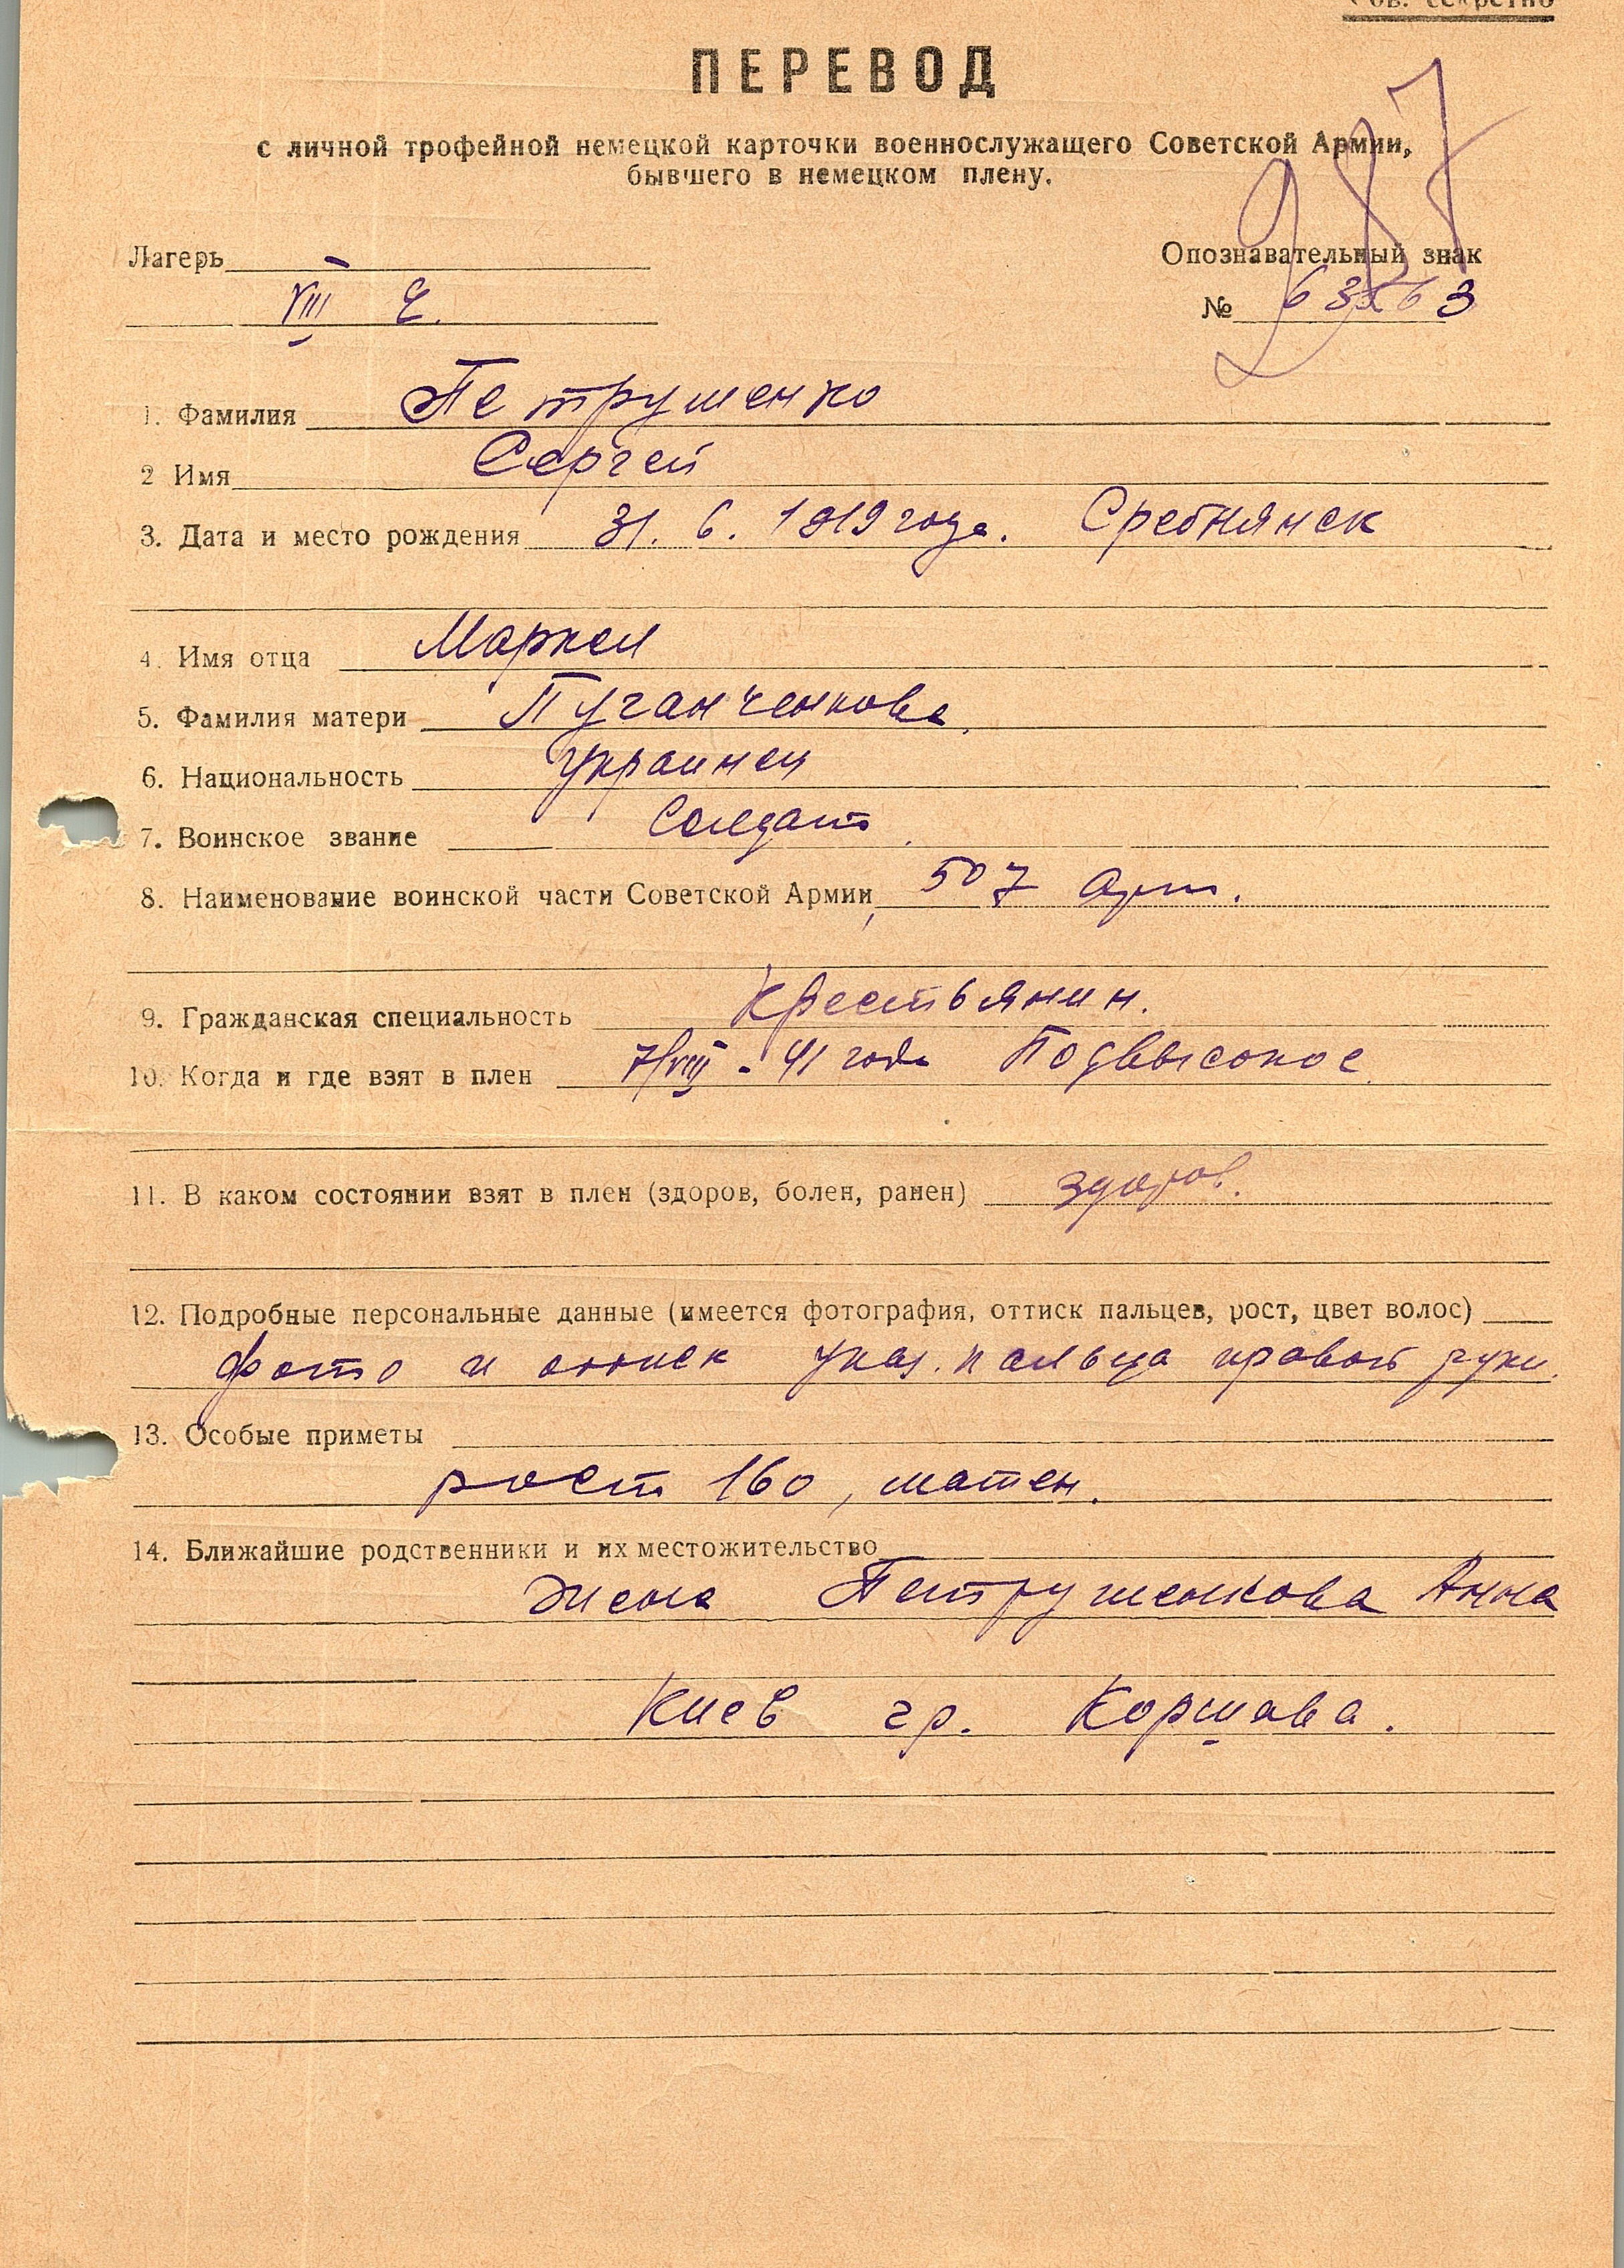 Сов. секретно
ПЕРЕВОД
с личной трофейной немецкой карточки военнослужащего Советской Армии,
бывшего в немецком плену.
987
Лагерь
Опознавательный знак
VIII Е.
№
1. Фамилия Петрушенко
2 Имя Сергей
3. Дата и место рождения 31. 6. 1919 года. Сребнянск
4. Имя отца Маркел
5. Фамилия матери Пуганченкова
6. Национальность Украинец
7. Воинское звание Солдат
8. Наименование воинской части Советской Армии, 507 Арт.
9. Гражданская специальность Крестьянин.
10. Когда и где взят в плен 7/VIII - 41 года Подвысокое
11. В каком состоянии взят в плен (здоров, болен, ранен) здоров.
12. Подробные персональные данные (имеется фотография, оттиск пальцев, рост, цвет волос)
фото и оттиск указ. пальца правой руки.
13. Особые приметы
рост 160, шатен.
14. Ближайшие родственники и их местожительство
Жена Петрушенкова Анна
Киев гр. Коршава.